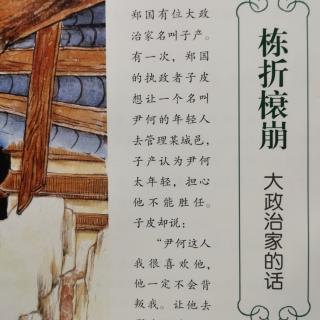 栋折榱崩
大政治家的话
郑国有位大政
治家名叫子产。
有一次，郑国
的执政者子皮
想让一个名叫
尹何的年轻人
去管理某城邑，
子产认为尹何
太年轻，担心
他不能胜任。
子皮却说：
“尹何这人
我很喜欢他，
他一定不会背
叛我。让他去